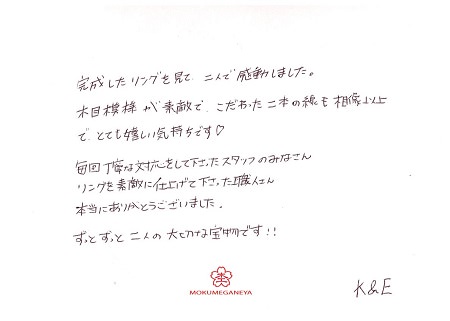 完成したリングを見て、二人で感動しました。
木目模様が素敵で、こだわった二本の線も想像以上
で、とても嬉しい気持ちです♡
毎回丁寧な対応をして下さったスタッフのみなさん
リングを素敵に仕上げて下さった職人さん
本当にありがとうございました。
ずっとずっと二人の大切な宝物です!!
MOKUMEGANEYA
K&E